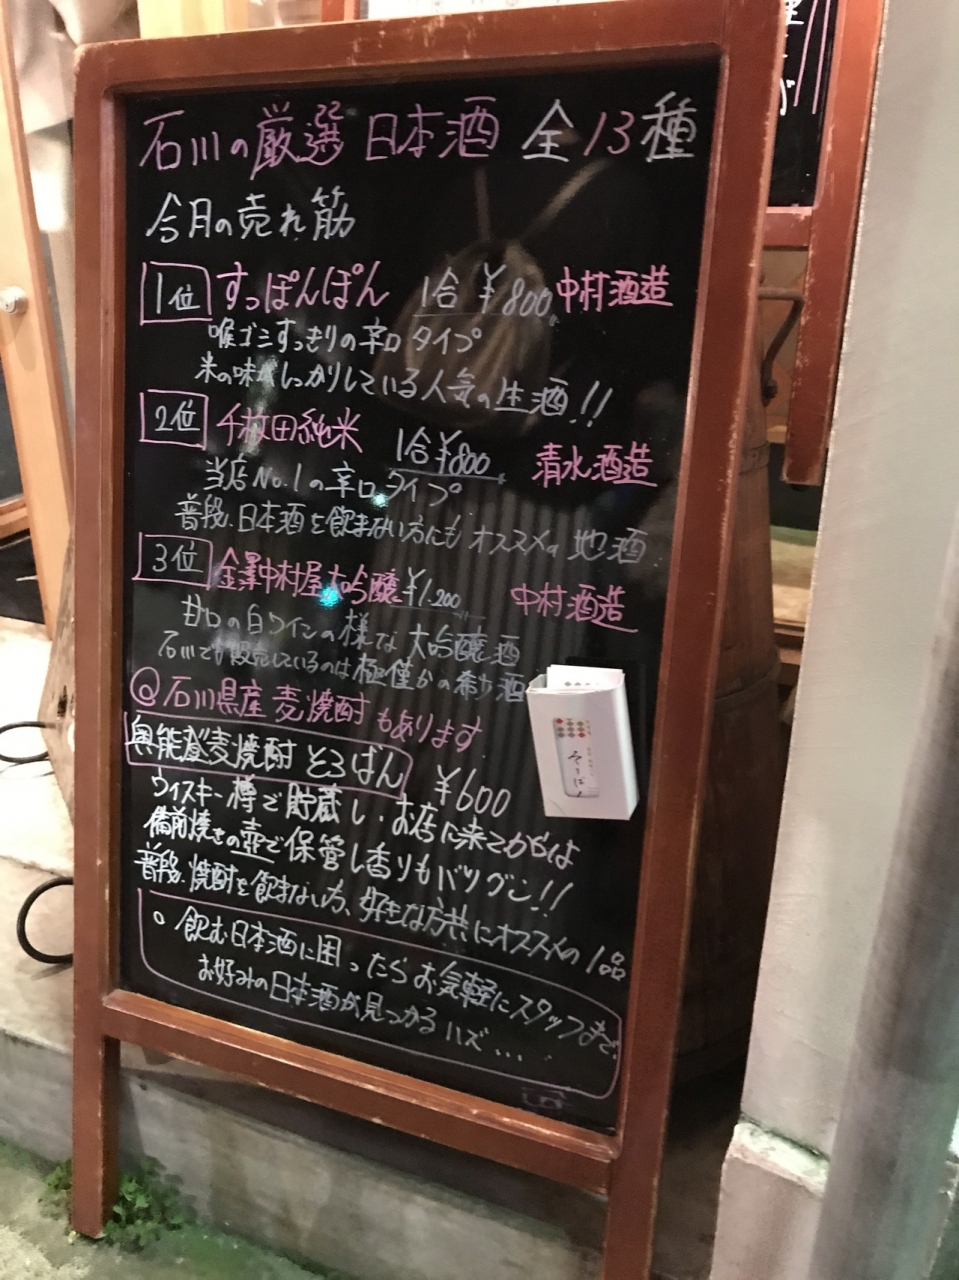 石川の厳選 日本酒 全13種
今月の売れ筋
1位 すっぽんぽん 1合¥800 中村酒造
喉ゴシすっきりの辛口タイプ
米の味がしっかりしている人気の生酒!!
2位 千枚田純米 1合¥800 清水酒造
当店No.1の辛口タイプ
普段、日本酒を飲まない方にもオススメの地酒
3位 金澤中村屋大吟醸 ¥1.200 中村酒造
甘口の白ワインの様な大吟醸酒
石川でも販売しているのは極僅かの希少酒
◎石川県産麦焼酎もあります
奥能登麦焼酎 とろばん ¥600
ウイスキー樽で貯蔵し、お店に来てからは
備前焼きの壺で保管し香りもバツグン!!
普段、焼酎を飲まない方、好きな方共にオススメの1品
○飲む日本酒に困ったらお気軽にスタッフまで。
お好みの日本酒が見つかるハズ...